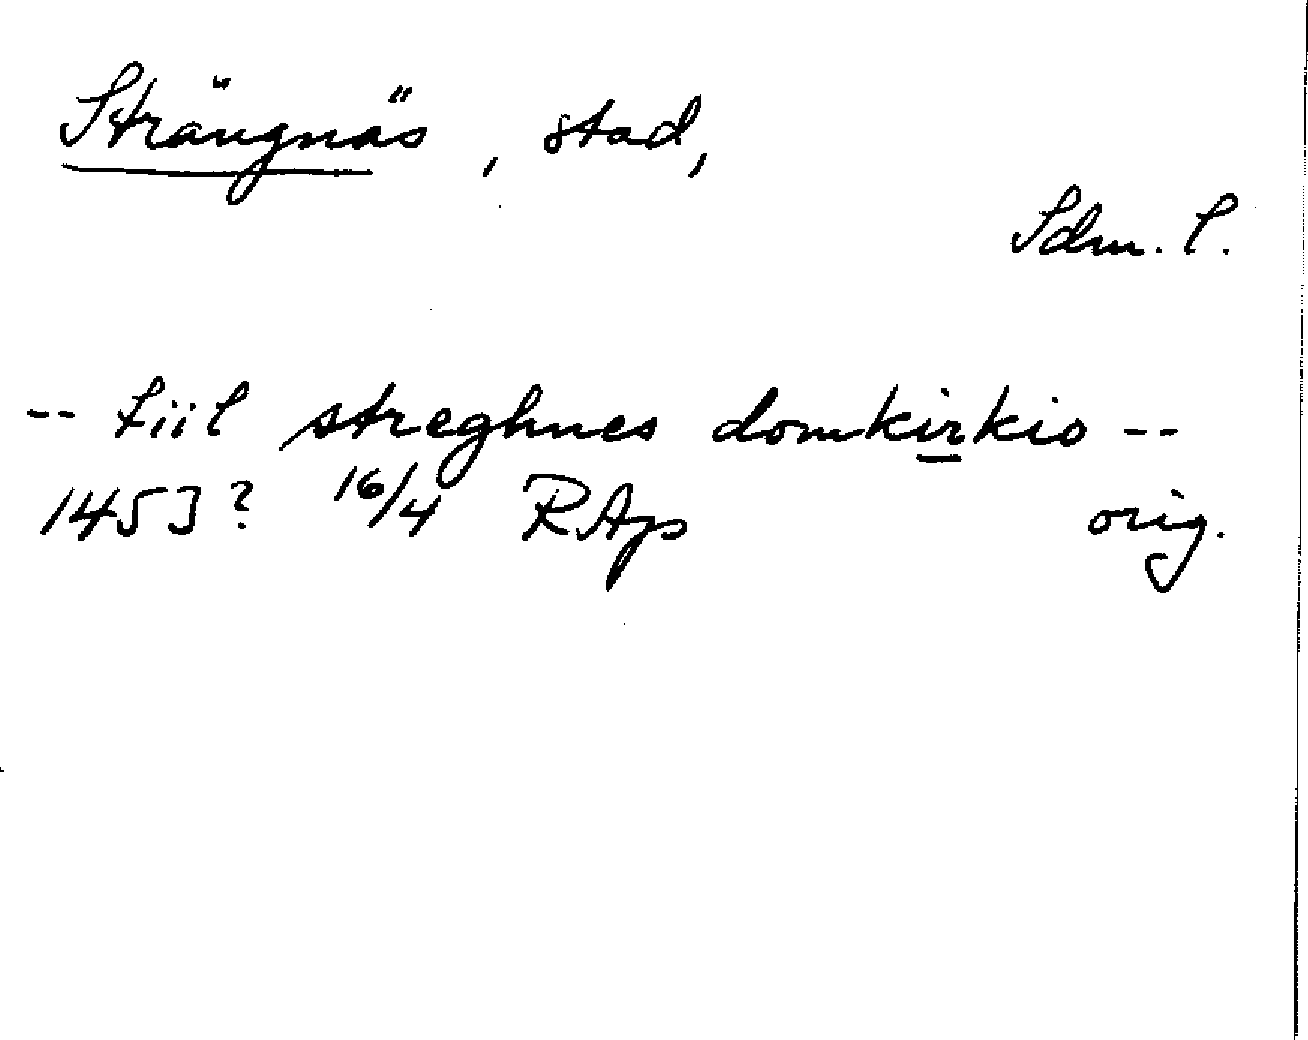 Strängnäs, stad,
Sdm. l.
-- tiil streghnes domkirkio --
1453? 16/4 RAp orig.